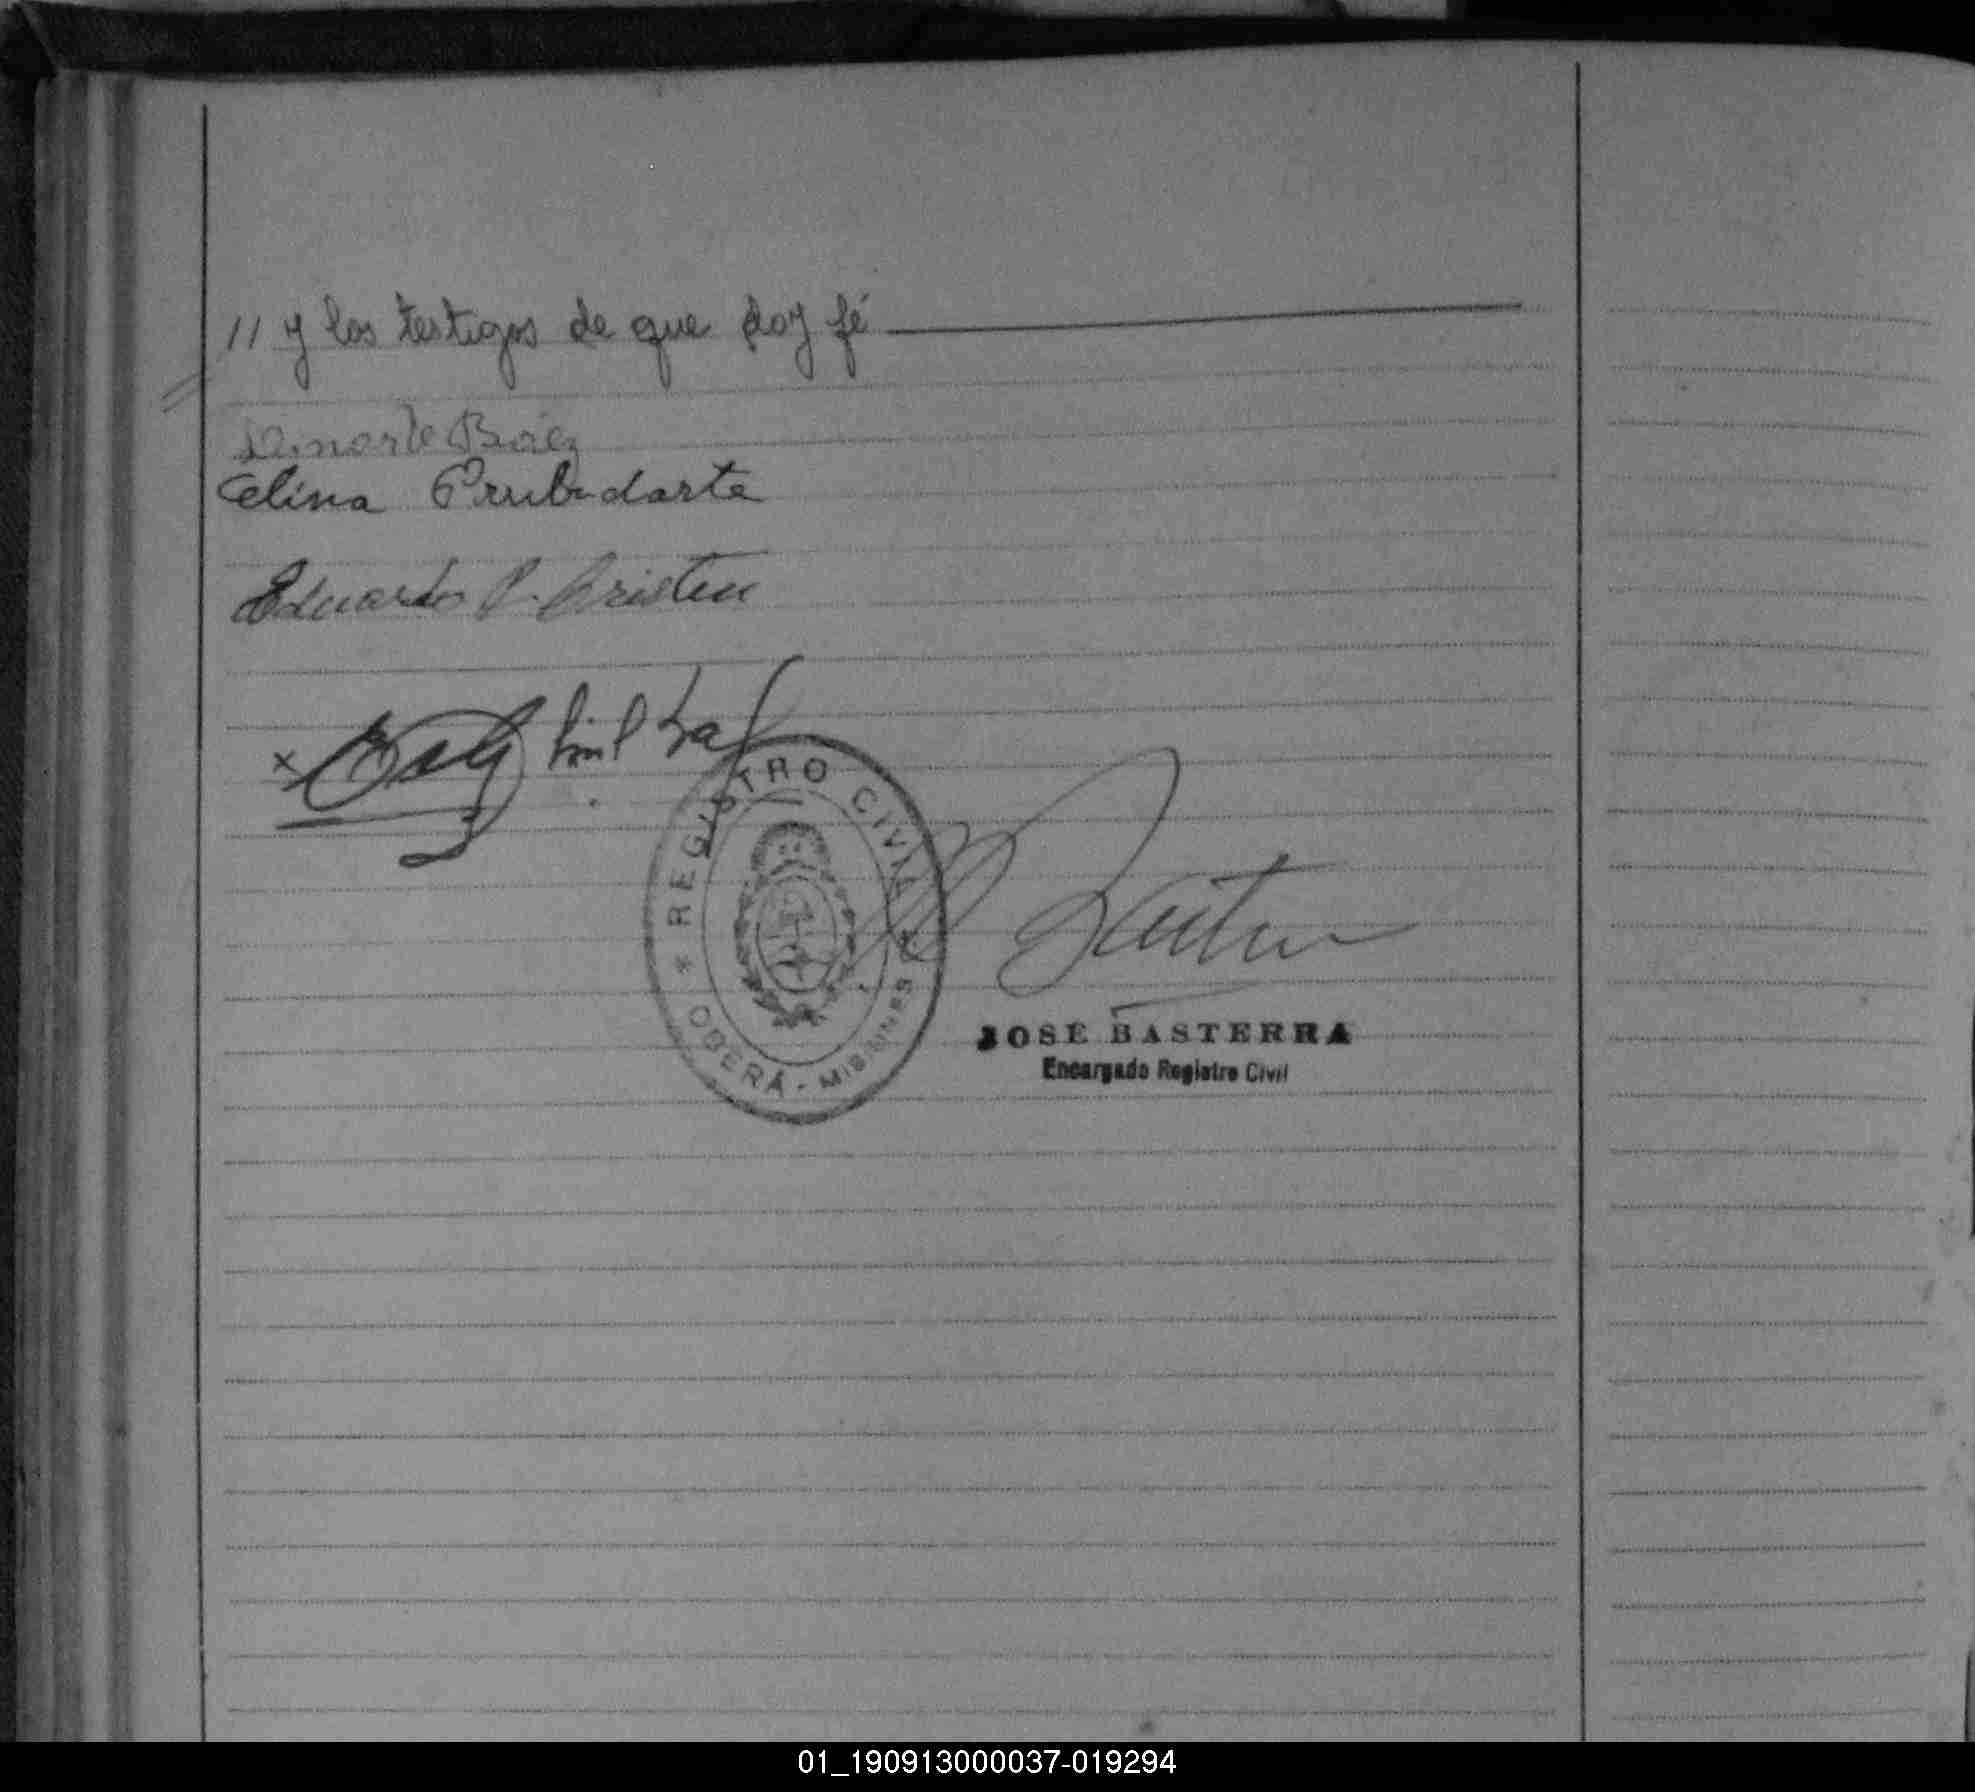 // y los testigos de que doy fé
Dinarte Báez
Celina
Eduardo P. Cristen
x
REGISTRO CIVIL
* OBERÁ - MISIONES *
JOSÉ BASTERRA
Encargado Registro Civil
01_190913000037-019294